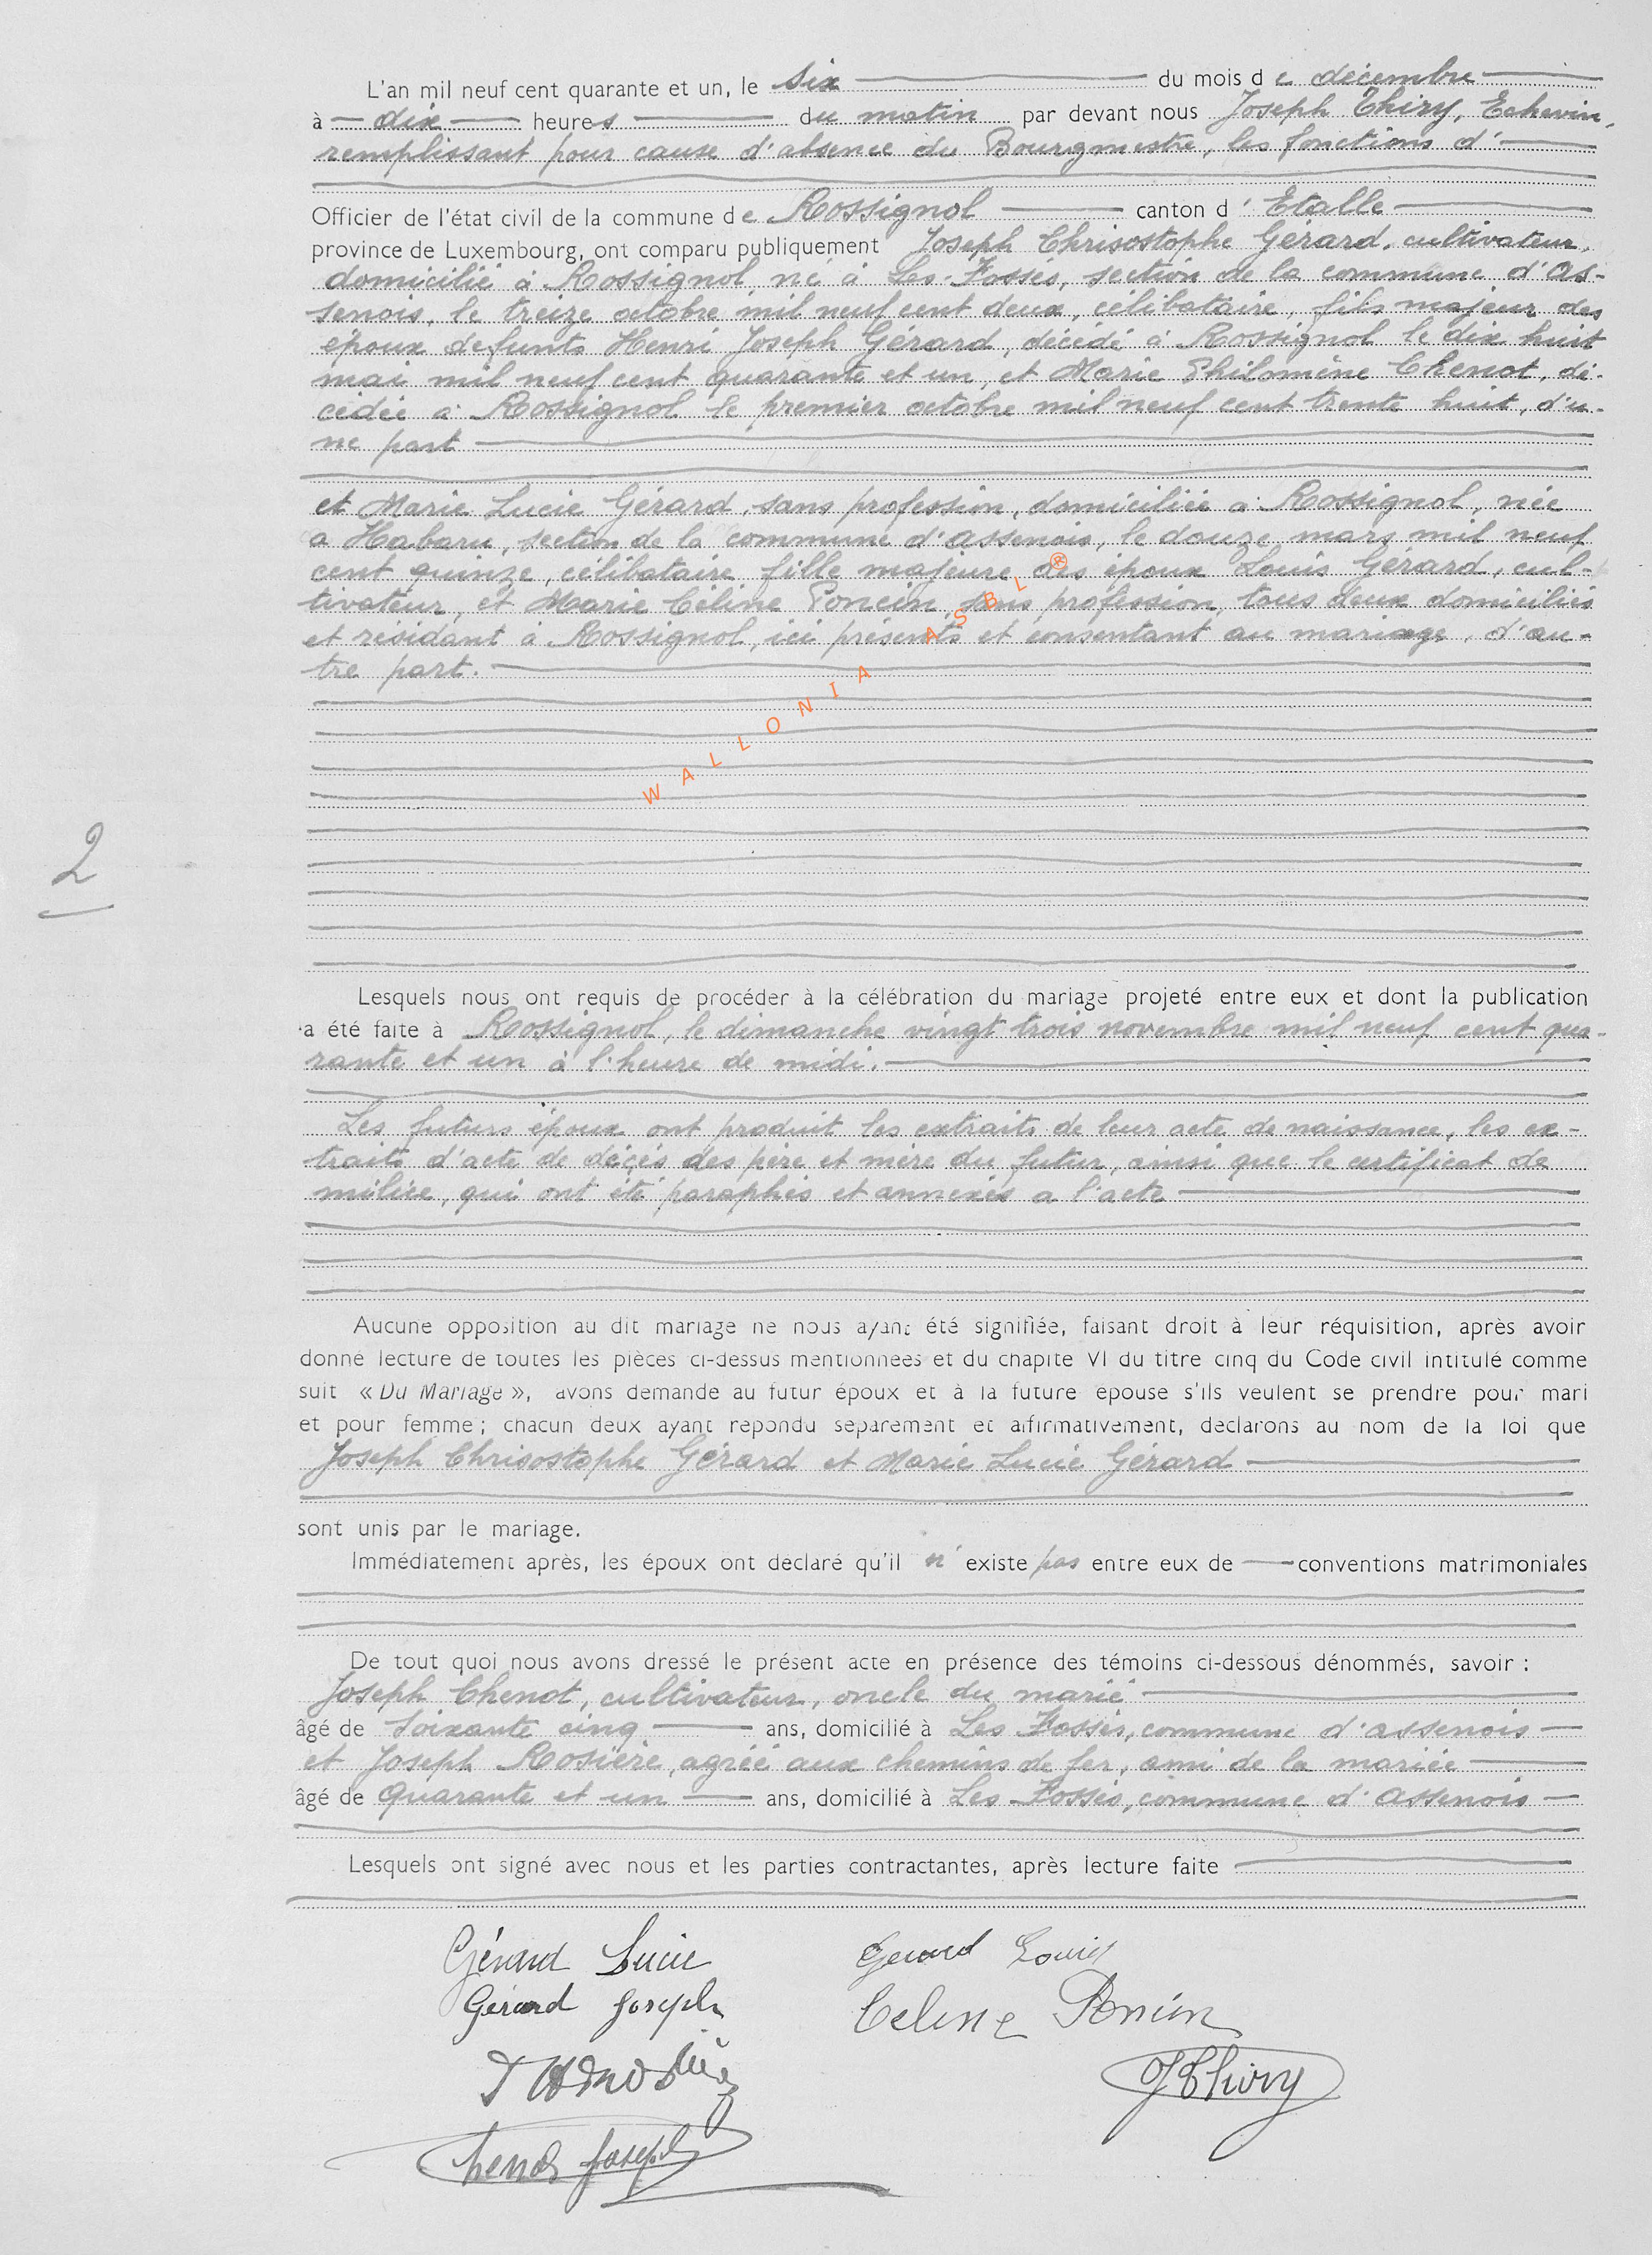 L'an mil neuf cent quarante et un, le six du mois de décembre
à dix heures du matin par devant nous Joseph Thiry, Echevin,
remplissant pour cause d'absence du Bourgmestre, les fonctions d'
Officier de l'état civil de la commune de Rossignol canton d'Etalle
province de Luxembourg, ont comparu publiquement Joseph Chrisostophe Gérard, cultivateur,
domicilié à Rossignol, né à Les Fossés, section de la commune d'As-
senois, le treize octobre mil neuf cent deux, célibataire, fils majeur des
époux defunts Henri Joseph Gérard, décédé à Rossignol le dix huit
mai mil neuf cent quarante et un, et Marie Philomène Chenot, dé-
cédée à Rossignol le premier octobre mil neuf cent trente huit, d'u-
ne part
et Marie Lucie Gérard, sans profession, domiciliée à Rossignol, née
a Habaru, section de la commune d'assenois, le douze mars mil neuf
cent quinze, célibataire, fille majeure des époux Louis Gérard, cul-
tivateur, et Marie Céline Poncin, sans profession, tous deux domiciliés
et résidant à Rossignol, ici présents et consentant au mariage, d'au-
tre part.
WALLONIA ASBL ®
2
Lesquels nous ont requis de procéder à la célébration du mariage projeté entre eux et dont la publication
a été faite à Rossignol, le dimanche vingt trois novembre mil neuf cent qua-
rante et un à l'heure de midi.
Les futurs époux ont produit les extraits de leur acte de naissance, les ex-
traits d'acte de décès des père et mère du futur, ainsi que le certificat de
milice, qui ont été paraphés et annexés a l'acte
Aucune opposition au dit mariage ne nous ayant été signifiée, faisant droit à leur réquisition, après avoir
donné lecture de toutes les pièces ci-dessus mentionnées et du chapite VI du titre cinq du Code civil intitulé comme
suit « Du Mariage », avons demande au futur époux et à la future épouse s'ils veulent se prendre pour mari
et pour femme ; chacun deux ayant repondu separement et affirmativement, declarons au nom de la loi que
Joseph Chrisostophe Gérard et Marie Lucie Gérard
sont unis par le mariage.
Immédiatement après, les époux ont déclaré qu'il n'existe pas entre eux de conventions matrimoniales
De tout quoi nous avons dressé le présent acte en présence des témoins ci-dessous dénommés, savoir :
Joseph Chenot, cultivateur, oncle du marié
âgé de soixante cinq ans, domicilié à Les Fossés, commune d'assenois
et Joseph Rosière, agréé aux chemins de fer, ami de la mariée
âgé de quarante et un ans, domicilié à Les Fossés, commune d'Assenois
Lesquels ont signé avec nous et les parties contractantes, après lecture faite
Gérard Lucie Gerard Louis
Gérard Joseph Celine Poncin
JThiry
Chenot Joseph